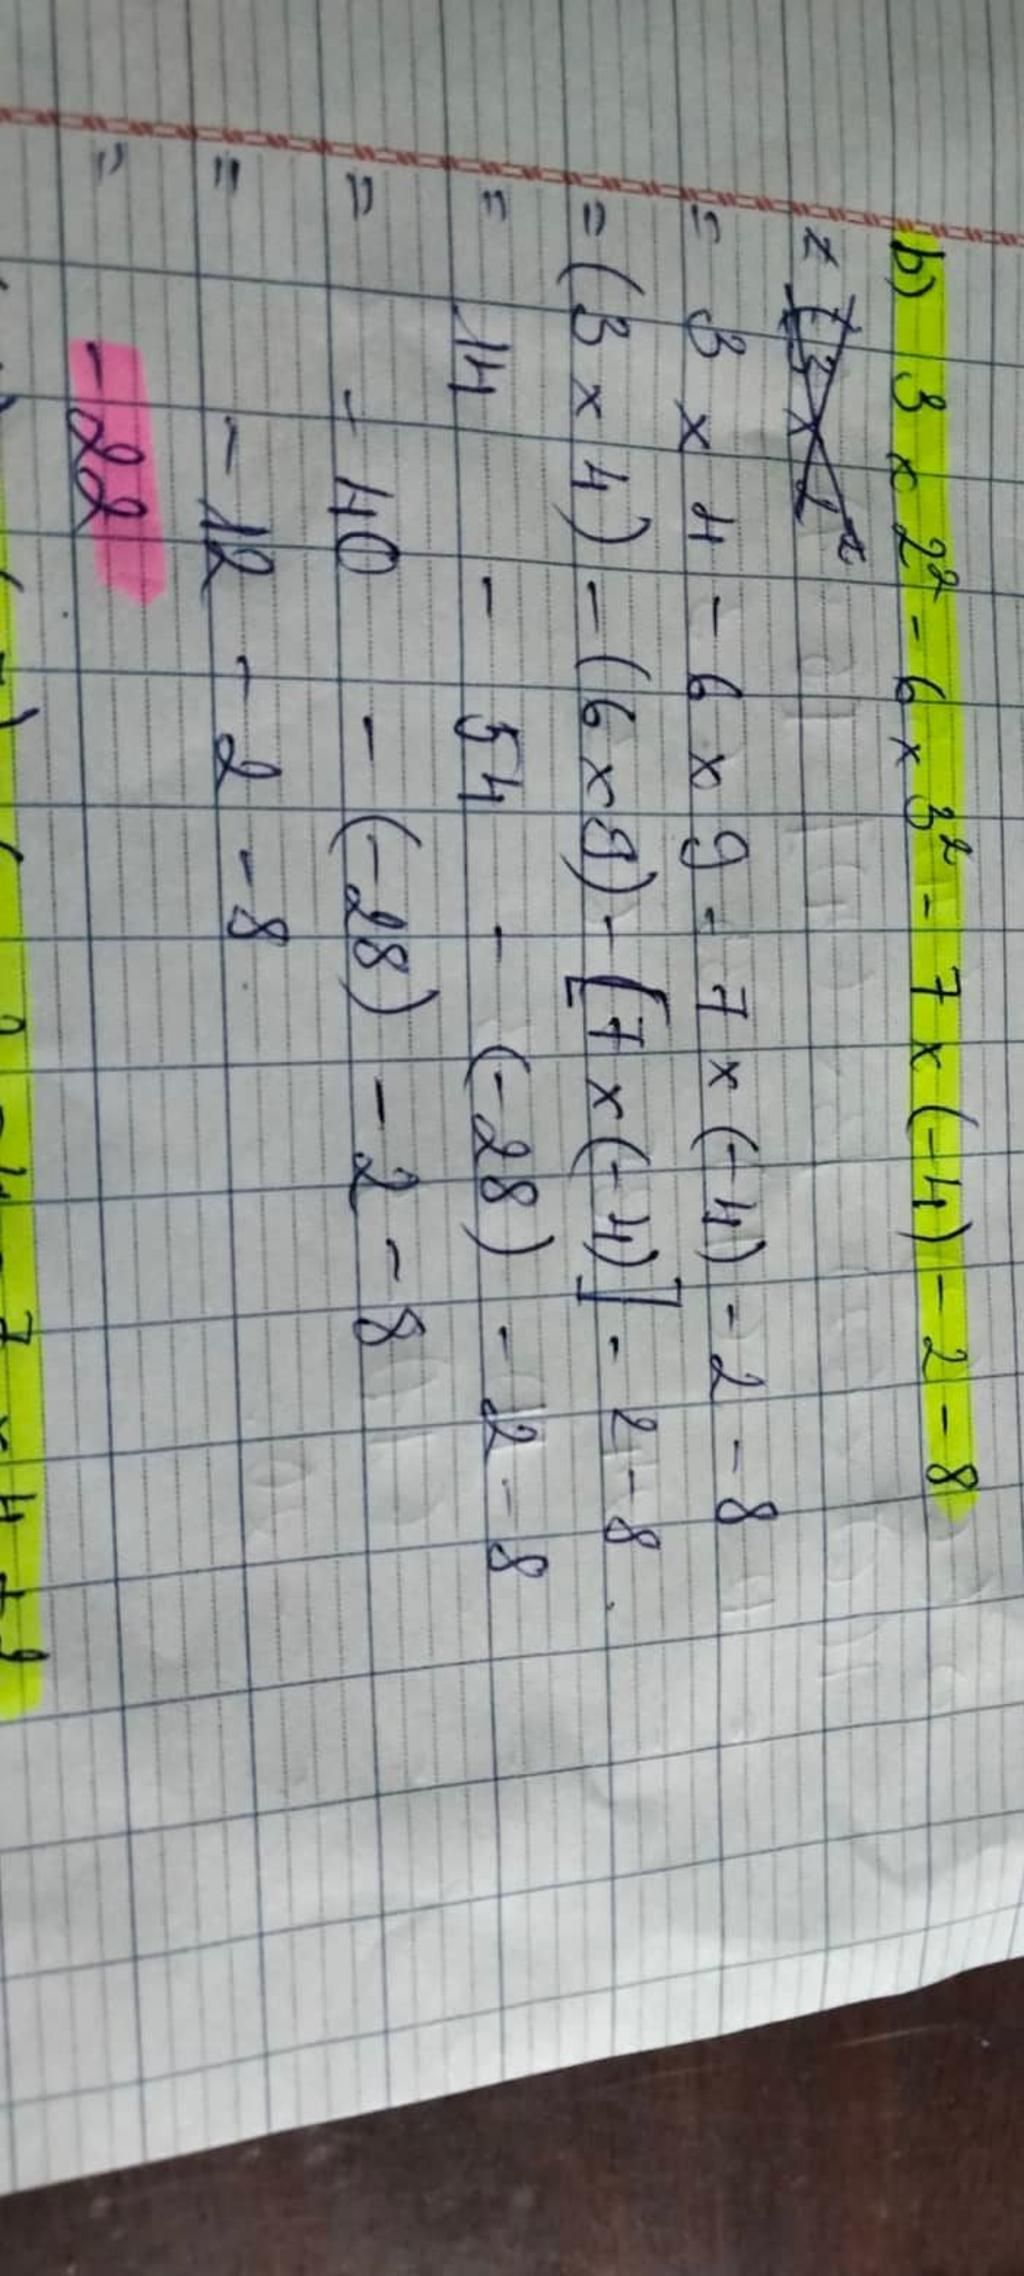 b) 3 x 2² - 6 x 3² - 7 x (-4) - 2 - 8
= 3 x 4 - 6 x 9 - 7 x (-4) - 2 - 8
= (3 x 4) - (6 x 9) - [7 x (-4)] - 2 - 8
= 14 - 54 - (-28) - 2 - 8
= - 40 - (-28) - 2 - 8
= - 12 - 2 - 8
= - 22